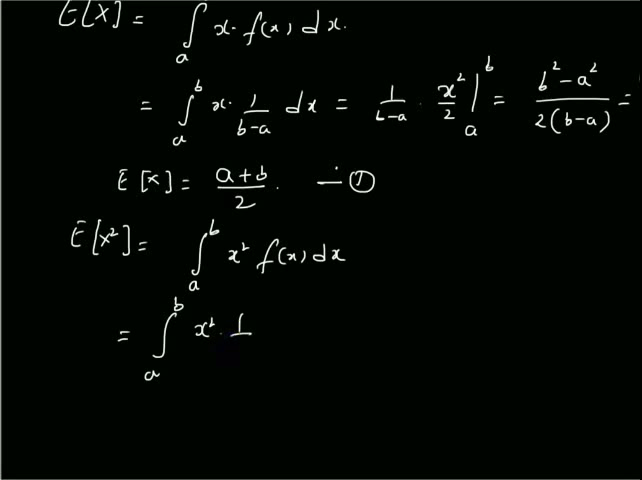 E[X] = ∫ₐ x. f(x) dx.
= ∫ₐᵇ x. 1/(b-a) dx = 1/(b-a) · x²/2 |ₐᵇ = (b²-a²)/(2(b-a)) =
E[X] = (a+b)/2. — ①
E[X²] = ∫ₐᵇ x² f(x) dx
= ∫ₐᵇ x² · 1